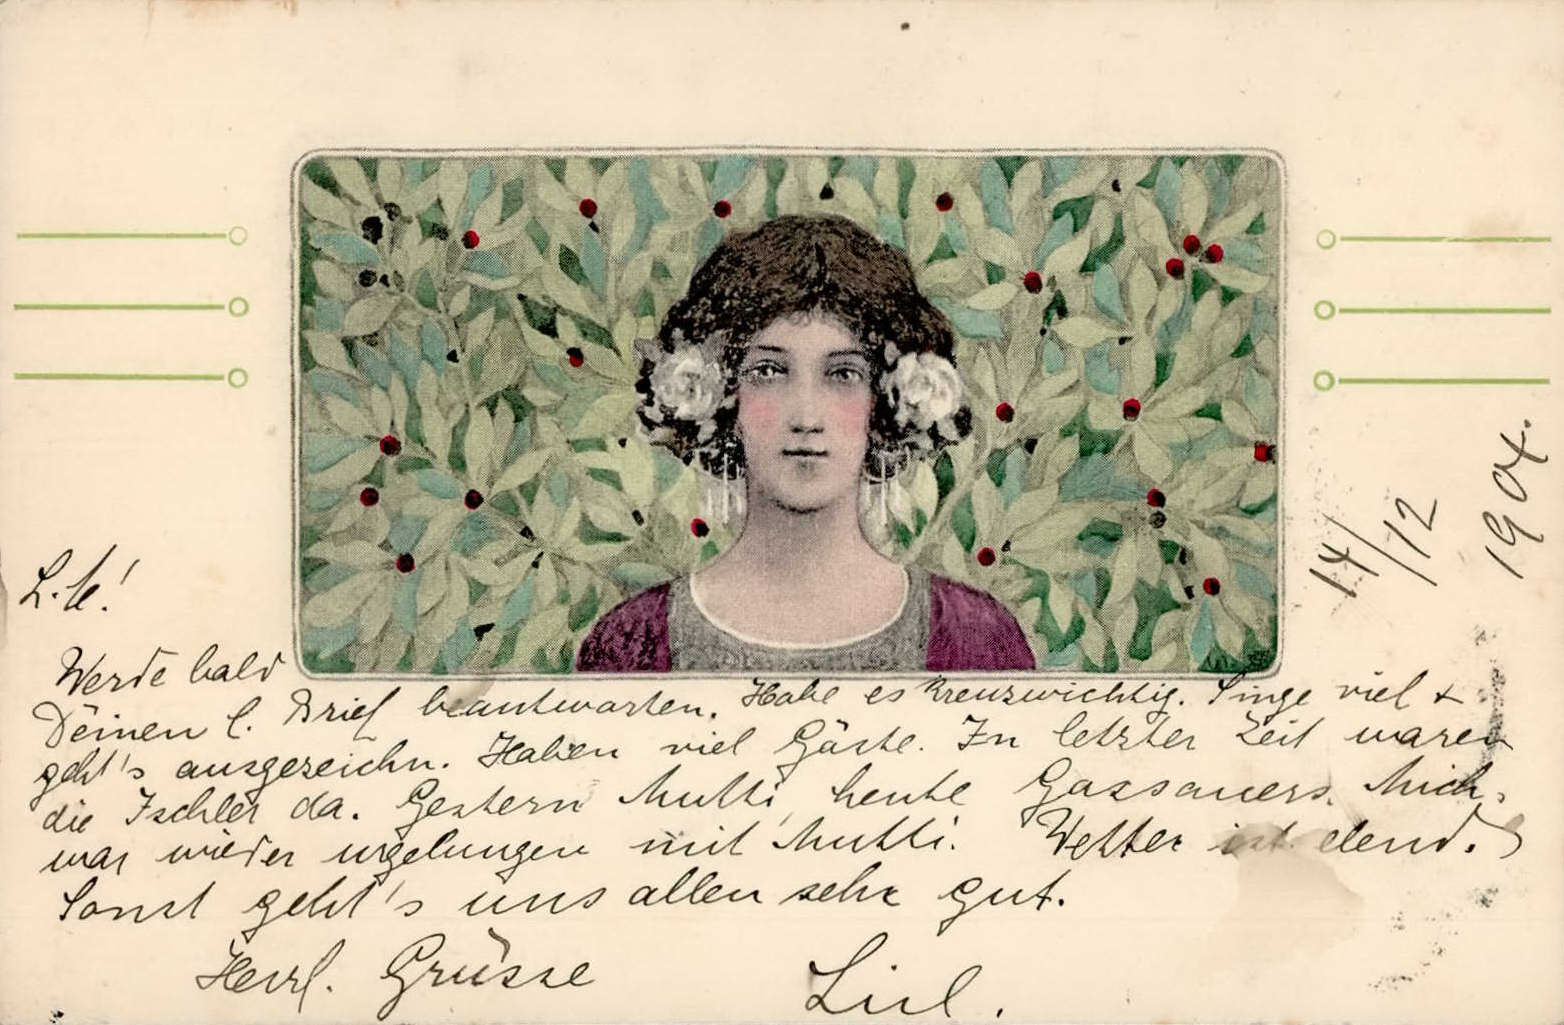 14/12
1904.
L. M!
Werde bald
Deinen l. Brief beantworten. Habe es kreuzwichtig. Singe viel +
geht's ausgezeichn. Haben viel Gäste. In letzter Zeit waren
die Ischler da. Gestern Mutti, heute Gassauers. Mich,
war wieder urgelungen mit Mutti. Wetter ist elend.
Sonst geht's uns allen sehr gut.
Herzl. Grüsse